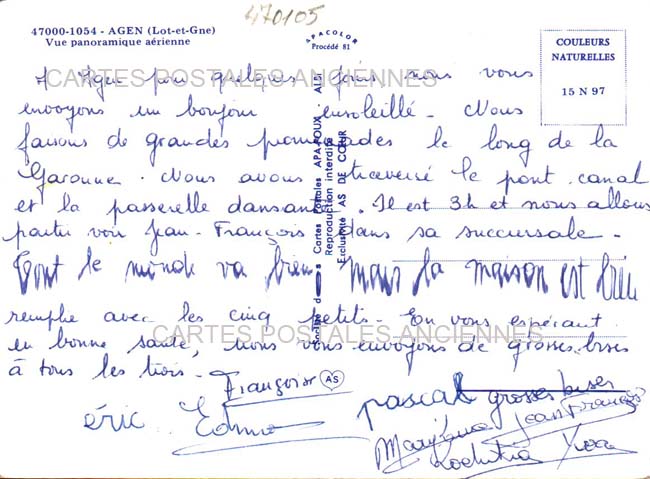 470105
47000-1054 - AGEN (Lot-et-Gne)
Vue panoramique aérienne
APACOLOR
Procédé 81
COULEURS
NATURELLES
15 N 97
CARTES POSTALES ANCIENNES
A Agen pour quelques jours nous vous
envoyons un bonjour ensoleillé. Nous
faisons de grandes promenades le long de la
Garonne. Nous avons traversé le pont canal
et la passerelle dansante. Il est 3h et nous allons
partir voir Jean-François dans sa succursale -
Tout le monde va bien Mais la maison est bien
remplie avec les cinq petits - En vous espérant
en bonne santé, nous vous envoyons de grosses bises
à tous les trois -
CARTES POSTALES ANCIENNES
Françoise
AS
pascal grosses bises
éric
Jean François
Cartes Postales APA-POUX - ALBI
Reproduction interdite
Exclusivité AS DE CŒUR